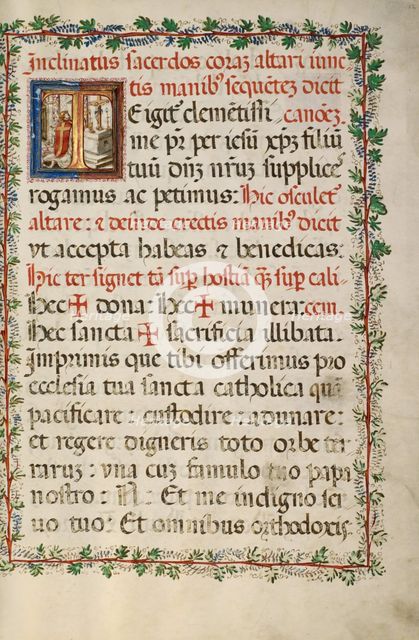 Inclinatus sacerdos coraȝ altari iunc
tis manibꝰ sequēteȝ dicit
TE igitᷣ clemētissi canōeȝ.
me pr̄ per iesū xp̄ȝ filiū
tuū dn̄ȝ nr̄uȝ supplice
rogamus ac petimus: Hic osculet᷑
altare: ⁊ deinde erectis manibꝰ dicit
vt accepta habeas ⁊ benedicas:
Hic ter signet tā suꝑ hostiā qȝ suꝑ cali
Hec ✠ dona: Hec ✠ munera: cem.
Hec sancta ✠ sacrificia illibata.
Imprimis que tibi offerimus pro
ecclesia tua sancta catholica quā
pacificare: custodire: adunare:
et regere digneris toto orbe ter
raruȝ: vna cuȝ famulo tuo papa
nostro: N: Et me indigno ser
uo tuo: Et omnibus orthodoxis